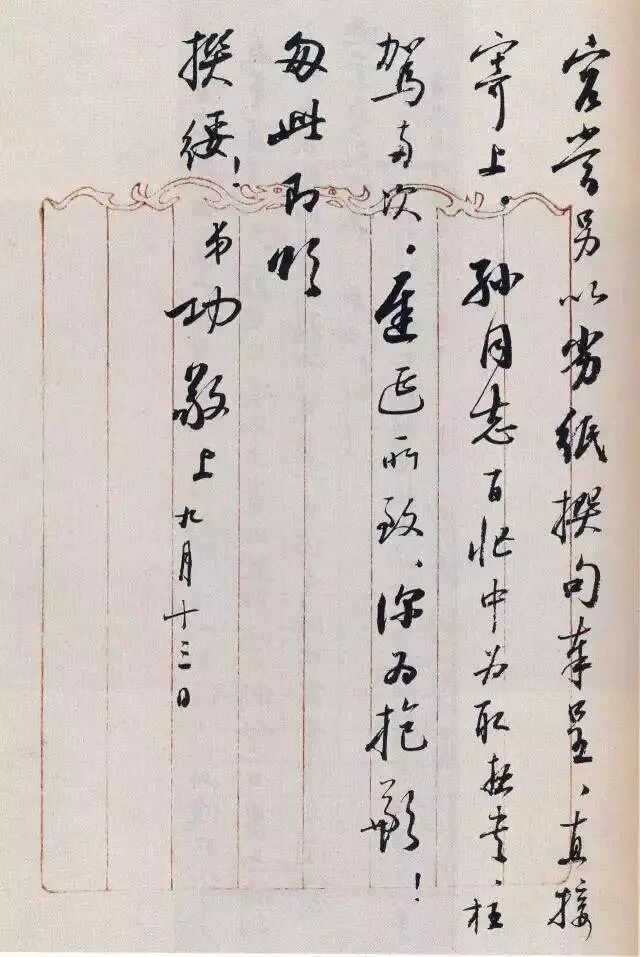 容当另以劣纸撰句奉呈、直接
寄上。孙同志百忙中为取拙书、枉
驾两次。迟延所致、深为抱歉！
匆此即颂
撰绥！弟功敬上九月十三日